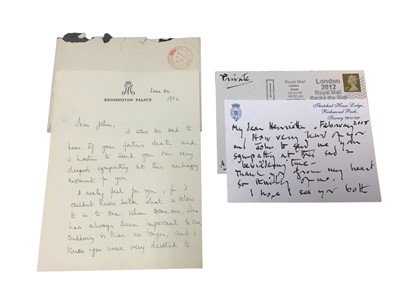 KENSINGTON PALACE
June 30
Dear John,
I was so sad to
hear of your father's death and
I hasten to send you our very
deepest sympathy at this unhappy
moment for you
I really feel for you, for I
couldn't know better what a blow
it is to one when someone who
has always been important to one,
suddenly is there no longer, and I
know you were very devoted to
Private
Royal Mail
London
2012
Royal Mail
Thatched House Lodge,
Richmond Park,
Surrey
February 2005
My dear Henrietta,
How very kind of you
and John to send me your
sympathy at this sad
Thank you from my heart
so thinking of me.
I hope see you both